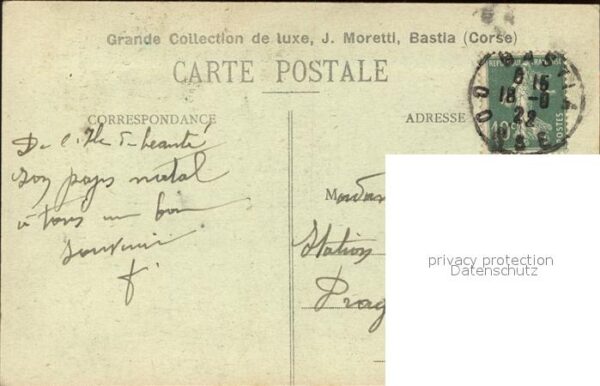 Grande Collection de luxe, J. Moretti, Bastia (Corse)
CARTE POSTALE
CORRESPONDANCE
ADRESSE
De l'Ile de beauté
son pays natal
à tous un bon
souvenir.
f.
BASTIA
15
18-9
22
CORSE
10c
POSTES
Madam
Station
Prag
privacy protection
Datenschutz